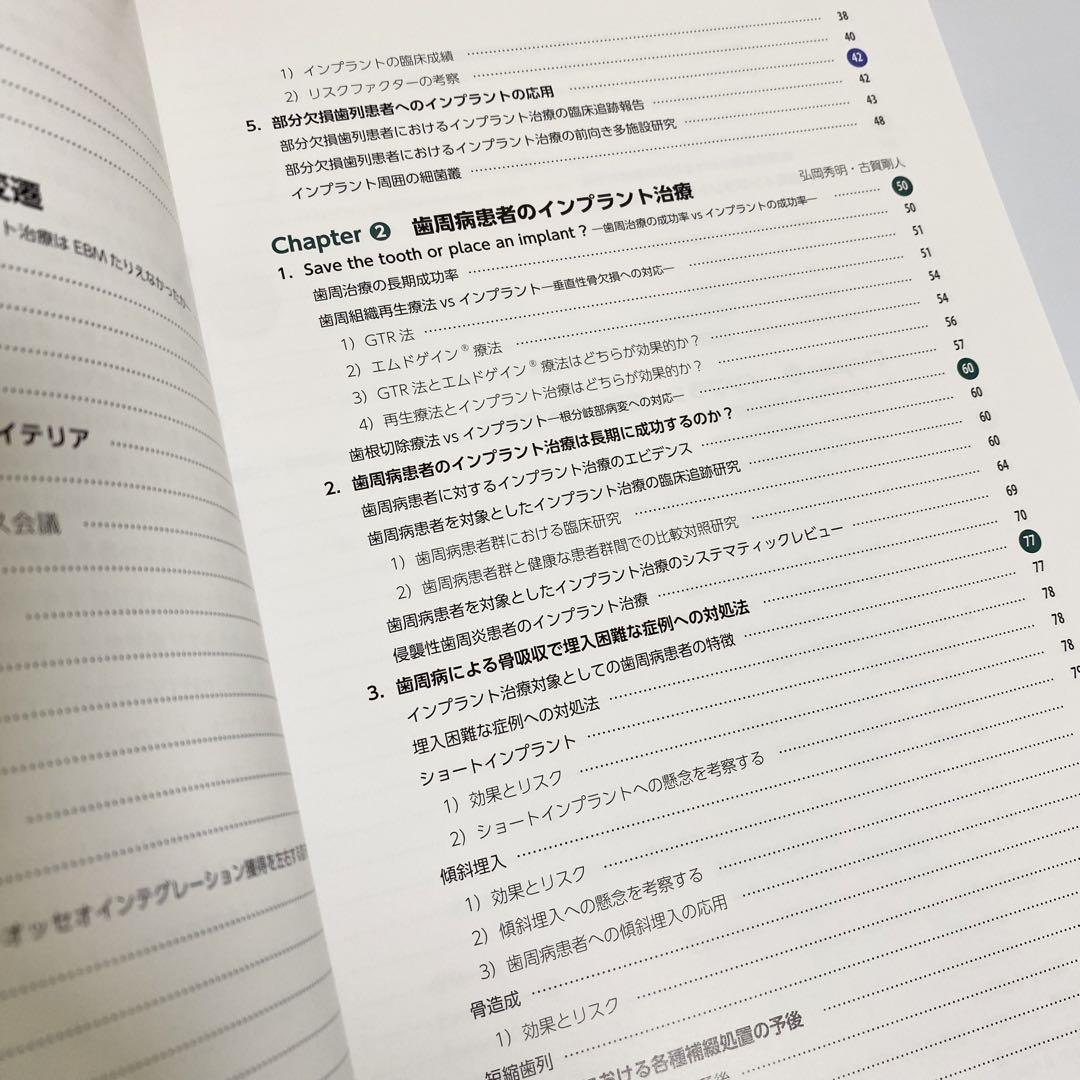 変遷
ト治療は EBM たりえなかったか
イテリア
ス会議
オッセオインテグレーション獲得を左右する
1) インプラントの臨床成績 38
2) リスクファクターの考察 40
5. 部分欠損歯列患者へのインプラントの応用 42
部分欠損歯列患者におけるインプラント治療の臨床追跡報告 42
部分欠損歯列患者におけるインプラント治療の前向き多施設研究 43
インプラント周囲の細菌叢 48
Chapter 2 歯周病患者のインプラント治療 弘岡秀明・古賀剛人
1. Save the tooth or place an implant ? ―歯周治療の成功率 vs インプラントの成功率― 50
歯周治療の長期成功率 50
歯周組織再生療法 vs インプラント―垂直性骨欠損への対応― 51
1) GTR 法 51
2) エムドゲイン® 療法 54
3) GTR 法とエムドゲイン® 療法はどちらが効果的か？ 54
4) 再生療法とインプラント治療はどちらが効果的か？ 56
歯根切除療法 vs インプラント―根分岐部病変への対応― 57
2. 歯周病患者のインプラント治療は長期に成功するのか？ 60
歯周病患者に対するインプラント治療のエビデンス 60
歯周病患者を対象としたインプラント治療の臨床追跡研究 60
1) 歯周病患者群における臨床研究 60
2) 歯周病患者群と健康な患者群間での比較対照研究 64
歯周病患者を対象としたインプラント治療のシステマティックレビュー 69
侵襲性歯周炎患者のインプラント治療 70
3. 歯周病による骨吸収で埋入困難な症例への対処法 77
インプラント治療対象としての歯周病患者の特徴 77
埋入困難な症例への対処法 78
ショートインプラント 78
1) 効果とリスク 78
2) ショートインプラントへの懸念を考察する
傾斜埋入
1) 効果とリスク
2) 傾斜埋入への懸念を考察する
3) 歯周病患者への傾斜埋入の応用
骨造成
1) 効果とリスク
短縮歯列
おける各種補綴処置の予後